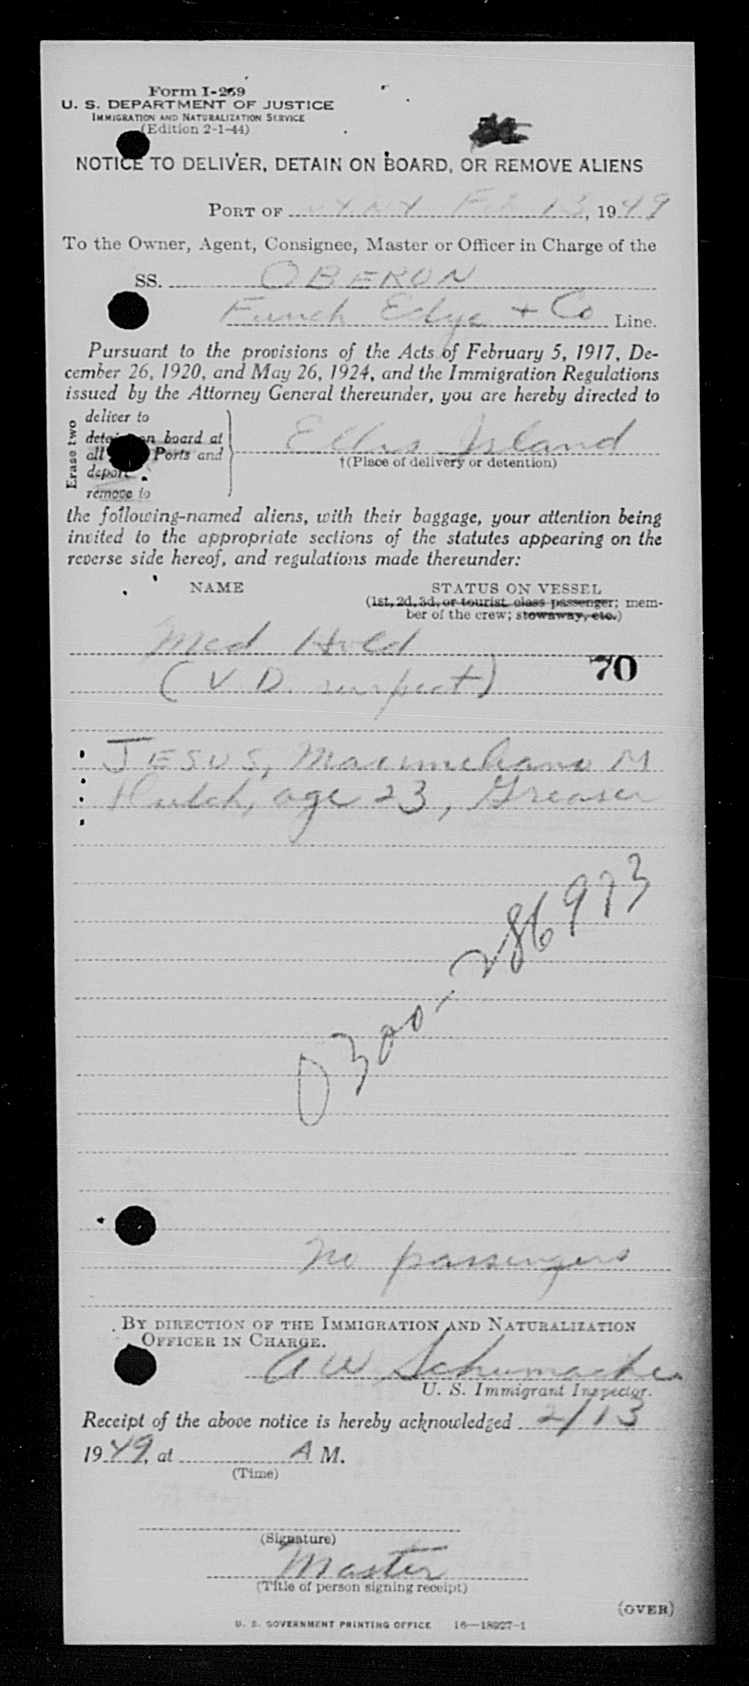 Form I-269
U. S. DEPARTMENT OF JUSTICE
IMMIGRATION AND NATURALIZATION SERVICE
(Edition 2-1-44)
NOTICE TO DELIVER, DETAIN ON BOARD, OR REMOVE ALIENS
PORT OF NYNY Feb 13, 1949
To the Owner, Agent, Consignee, Master or Officer in Charge of the
SS. OBERON
Funch Edye + Co Line.
Pursuant to the provisions of the Acts of February 5, 1917, De-
cember 26, 1920, and May 26, 1924, and the Immigration Regulations
issued by the Attorney General thereunder, you are hereby directed to
Erase two
deliver to
detain on board at
all Ports and
deport
remove to
Ellis Island
†(Place of delivery or detention)
the following-named aliens, with their baggage, your attention being
invited to the appropriate sections of the statutes appearing on the
reverse side hereof, and regulations made thereunder:
NAME STATUS ON VESSEL
(1st, 2d, 3d, or tourist class passenger; mem-
ber of the crew; stowaway, etc.)
Med Hold
(V. D. suspect) 70
JESUS, Maximiliano M
Dutch, age 23, Greaser
0300-286973
No passengers
BY DIRECTION OF THE IMMIGRATION AND NATURALIZATION
OFFICER IN CHARGE.
A W Schumacher
U. S. Immigrant Inspector.
Receipt of the above notice is hereby acknowledged 2/13
1949, at A M.
(Time)
(Signature)
Master
(Title of person signing receipt)
(OVER)
U. S. GOVERNMENT PRINTING OFFICE 16—18927-1